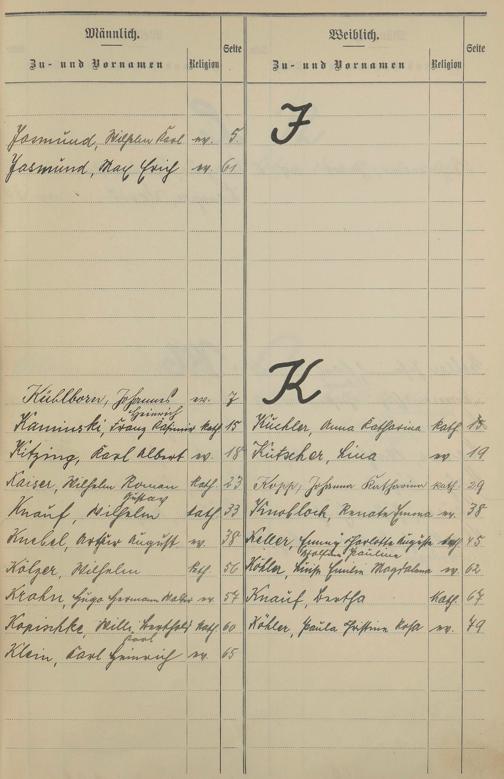 Männlich.
Zu- und Vornamen Religion Seite
Weiblich.
Zu- und Vornamen Religion Seite
J
Jasmund, Wilhelm Karl ev. 5.
Jasmund, Max Erich ev. 61
K
Kühlborn, Johannes Heinrich ev. 7
Kaminski, Franz Casimir kath 15
Kitzing, Karl Albert ev. 18
Kaiser, Wilhelm Roman kath. 23
Knauf, Wilhelm Gustav kath 33
Knebel, Artur August ev. 38
Kölzer, Wilhelm kth. 56
Krahn, Hugo Hermann Walter ev. 57
Kopintke, Willi Berthold Karl kath 60
Klein, Karl Heinrich ev. 65
Küchler, Anna Katharina kath 13.
Kutscher, Lina ev. 19
Kopp, Johanna Katharina kath. 29
Knoblock, Renate Emma ev. 38
Keller, Emmy Charlotte Auguste kath 45
Köhler, Pauline Emilie Magdalena ev. 62
Knauf, Bertha kath. 67
Köhler, Paula Christine Rosa ev. 79